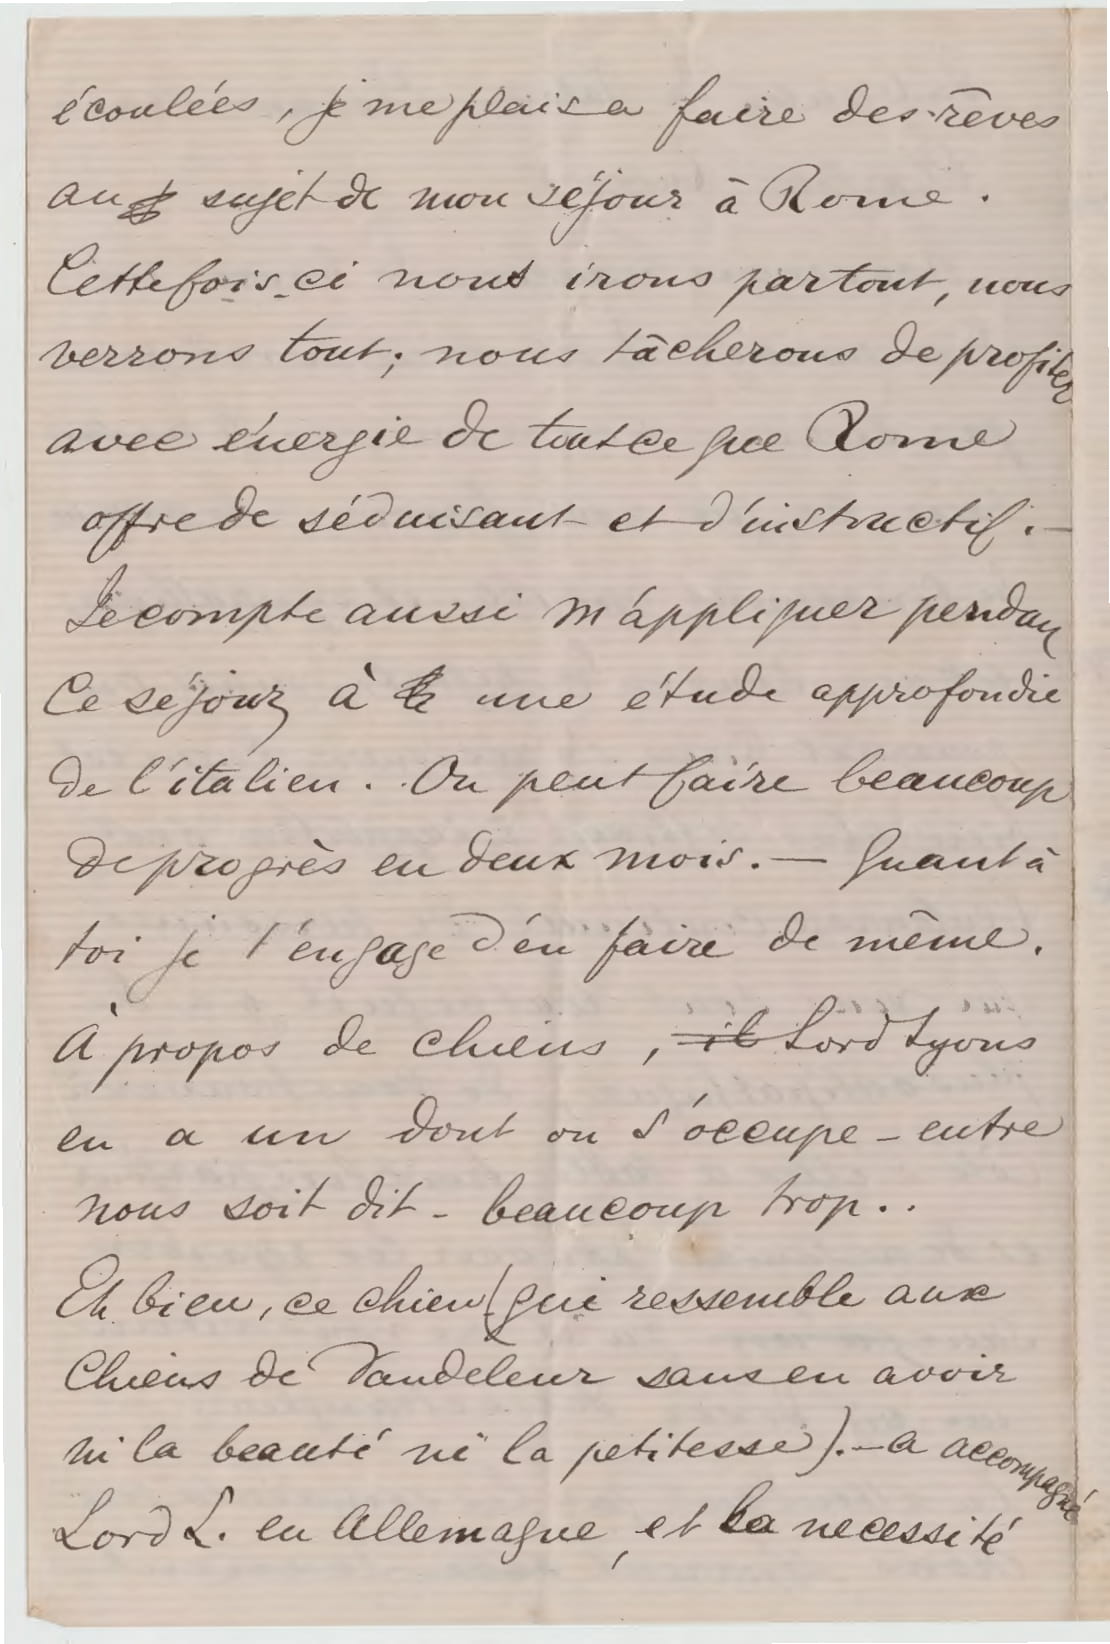 écoulées, je me plais a faire des rêves
au sujet de mon séjour à Rome.
Cette fois-ci nous irons partout, nous
verrons tout; nous tâcherons de profiter
avec énergie de tout ce que Rome
offre de séduisant et d'instructif. —
Je compte aussi m'appliquer pendant
ce séjour, à une étude approfondie
de l'italien. On peut faire beaucoup
de progrès en deux mois. — Quant à
toi je t'engage d'en faire de même.
À propos de chiens, il Lord Lyons
en a un dont on s'occupe - entre
nous soit dit - beaucoup trop..
Eh bien, ce chien (qui ressemble aux
chiens de Vandeleur sans en avoir
ni la beauté ni la petitesse). — a accompagné
Lord L. en Allemagne, et la necessité